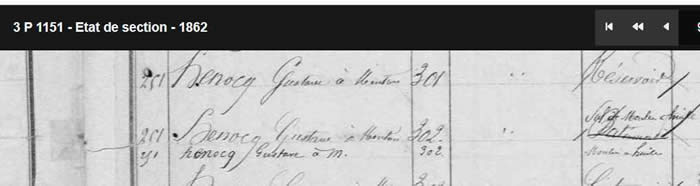 3 P 1151 - Etat de section - 1862
251 Henocq Gustave à Menton 301 " Réservoir
Sol de Moulin à huile
251 Henocq Gustave à Menton 302 " Batiment
251 henocq Gustave à M. 302. Moulin à huile